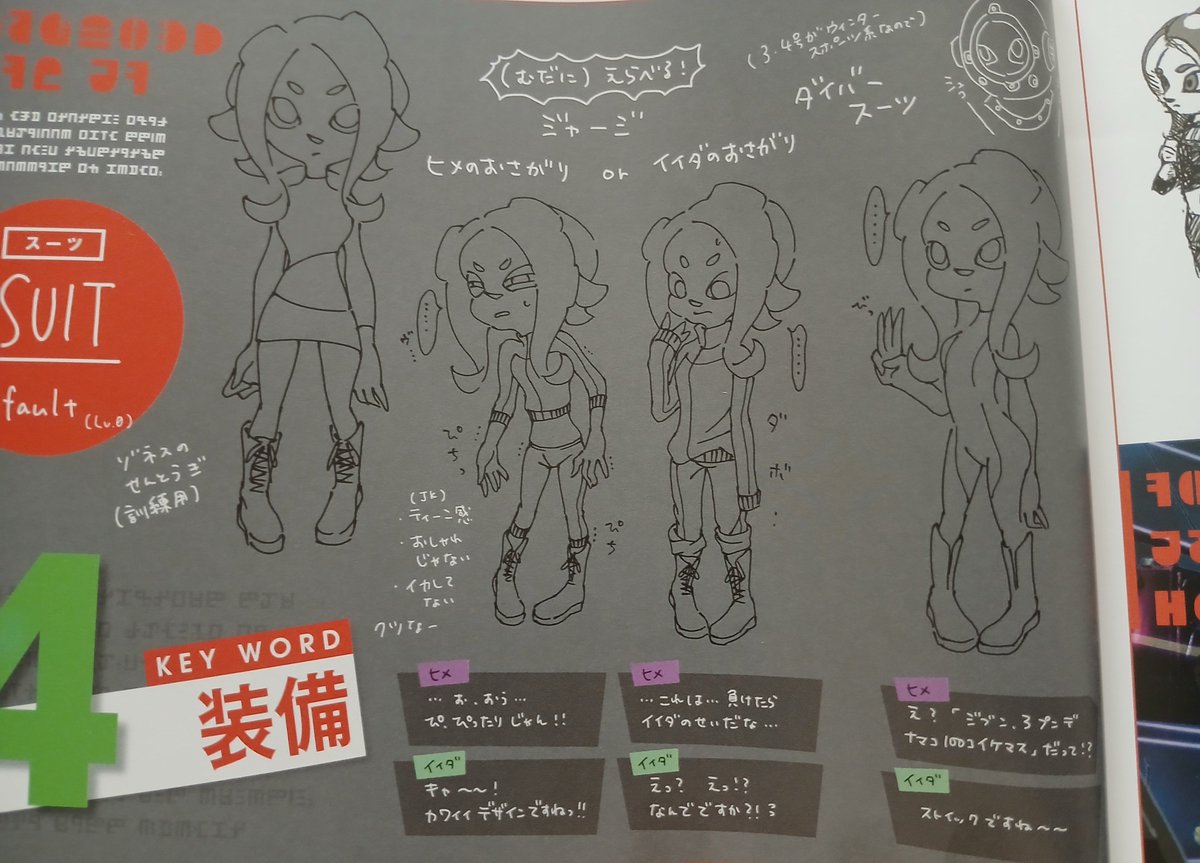 スーツ
SUIT
fault
(Lv.0)
ゾネスの
せんとうぎ
(訓練用)
(むだに)えらべる!
ジャージ
ヒメのおさがり or イイダのおさがり
(3、4号がウィンター
スポーツ系なので)
ダイバー
スーツ
ぴ
ち
っ
ぴ
ち
ダ
ボ
(JK)
・ティーン感
・おしゃれ
じゃない
・イカして
ない
クツなー
4
KEY WORD
装備
ヒメ
…お、おう…
ぴ、ぴったりじゃん!!
イイダ
キャ〜〜!
カワイイデザインですねっ!!
ヒメ
…これは…負けたら
イイダのせいだな…
イイダ
えっ? えっ!?
なんでですか?!
ヒメ
え?「ジブン、3プンデ
ナマコ100コイケマス」だって!?
イイダ
ストイックですね〜〜